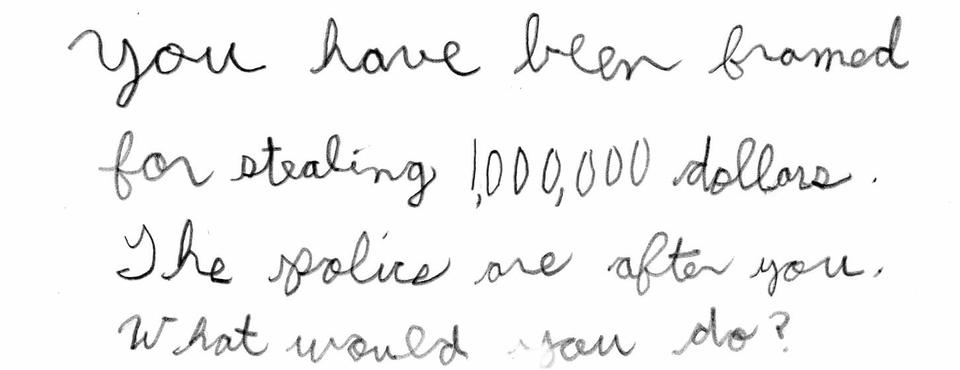 you have been framed
for stealing 1,000,000 dollars.
The police are after you.
What would you do?